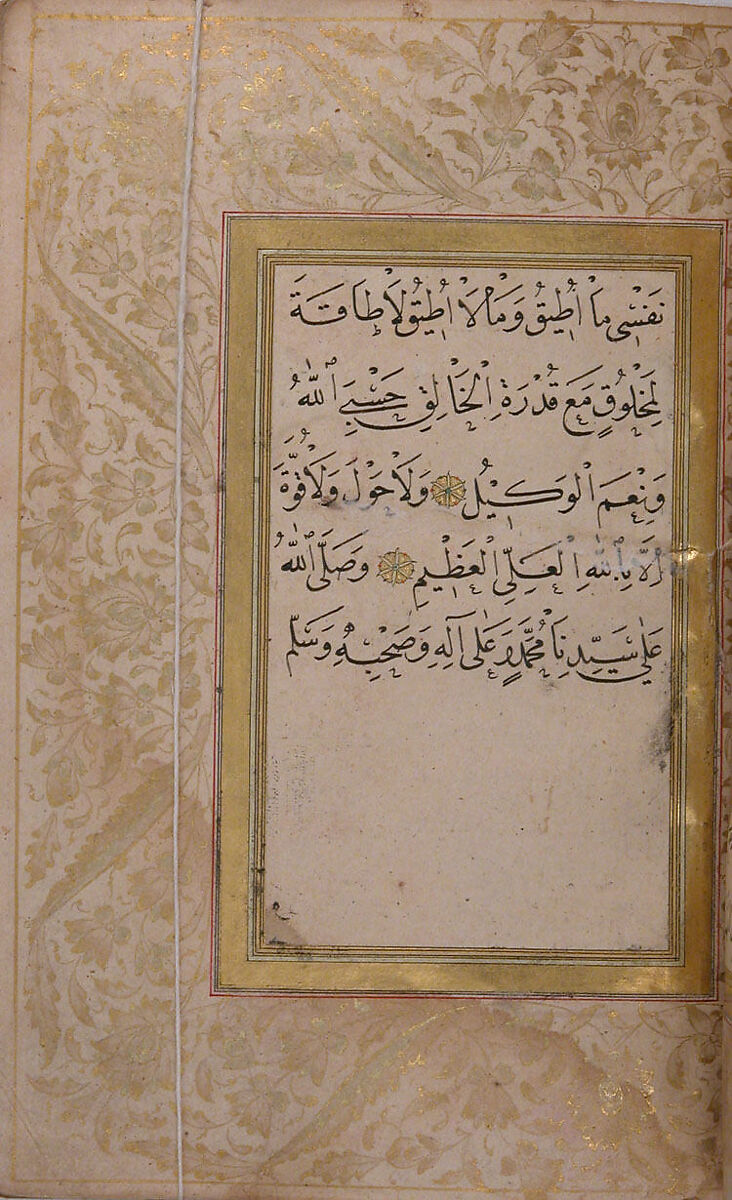 نَفْسِي مَا أُطِيقُ وَمَا لَا أُطِيقُ لَا طَاقَةَ
لِمَخْلُوقٍ مَعَ قُدْرَةِ الْخَالِقِ حَسْبِيَ اللّٰهُ
وَنِعْمَ الْوَكِيلُ وَلَا حَوْلَ وَلَا قُوَّةَ
اِلَّا بِاللّٰهِ الْعَلِيِّ الْعَظِيمِ وَصَلَّى اللّٰهُ
عَلٰى سَيِّدِنَا مُحَمَّدٍ وَعَلٰى آلِهِ وَصَحْبِهِ وَسَلَّمَ